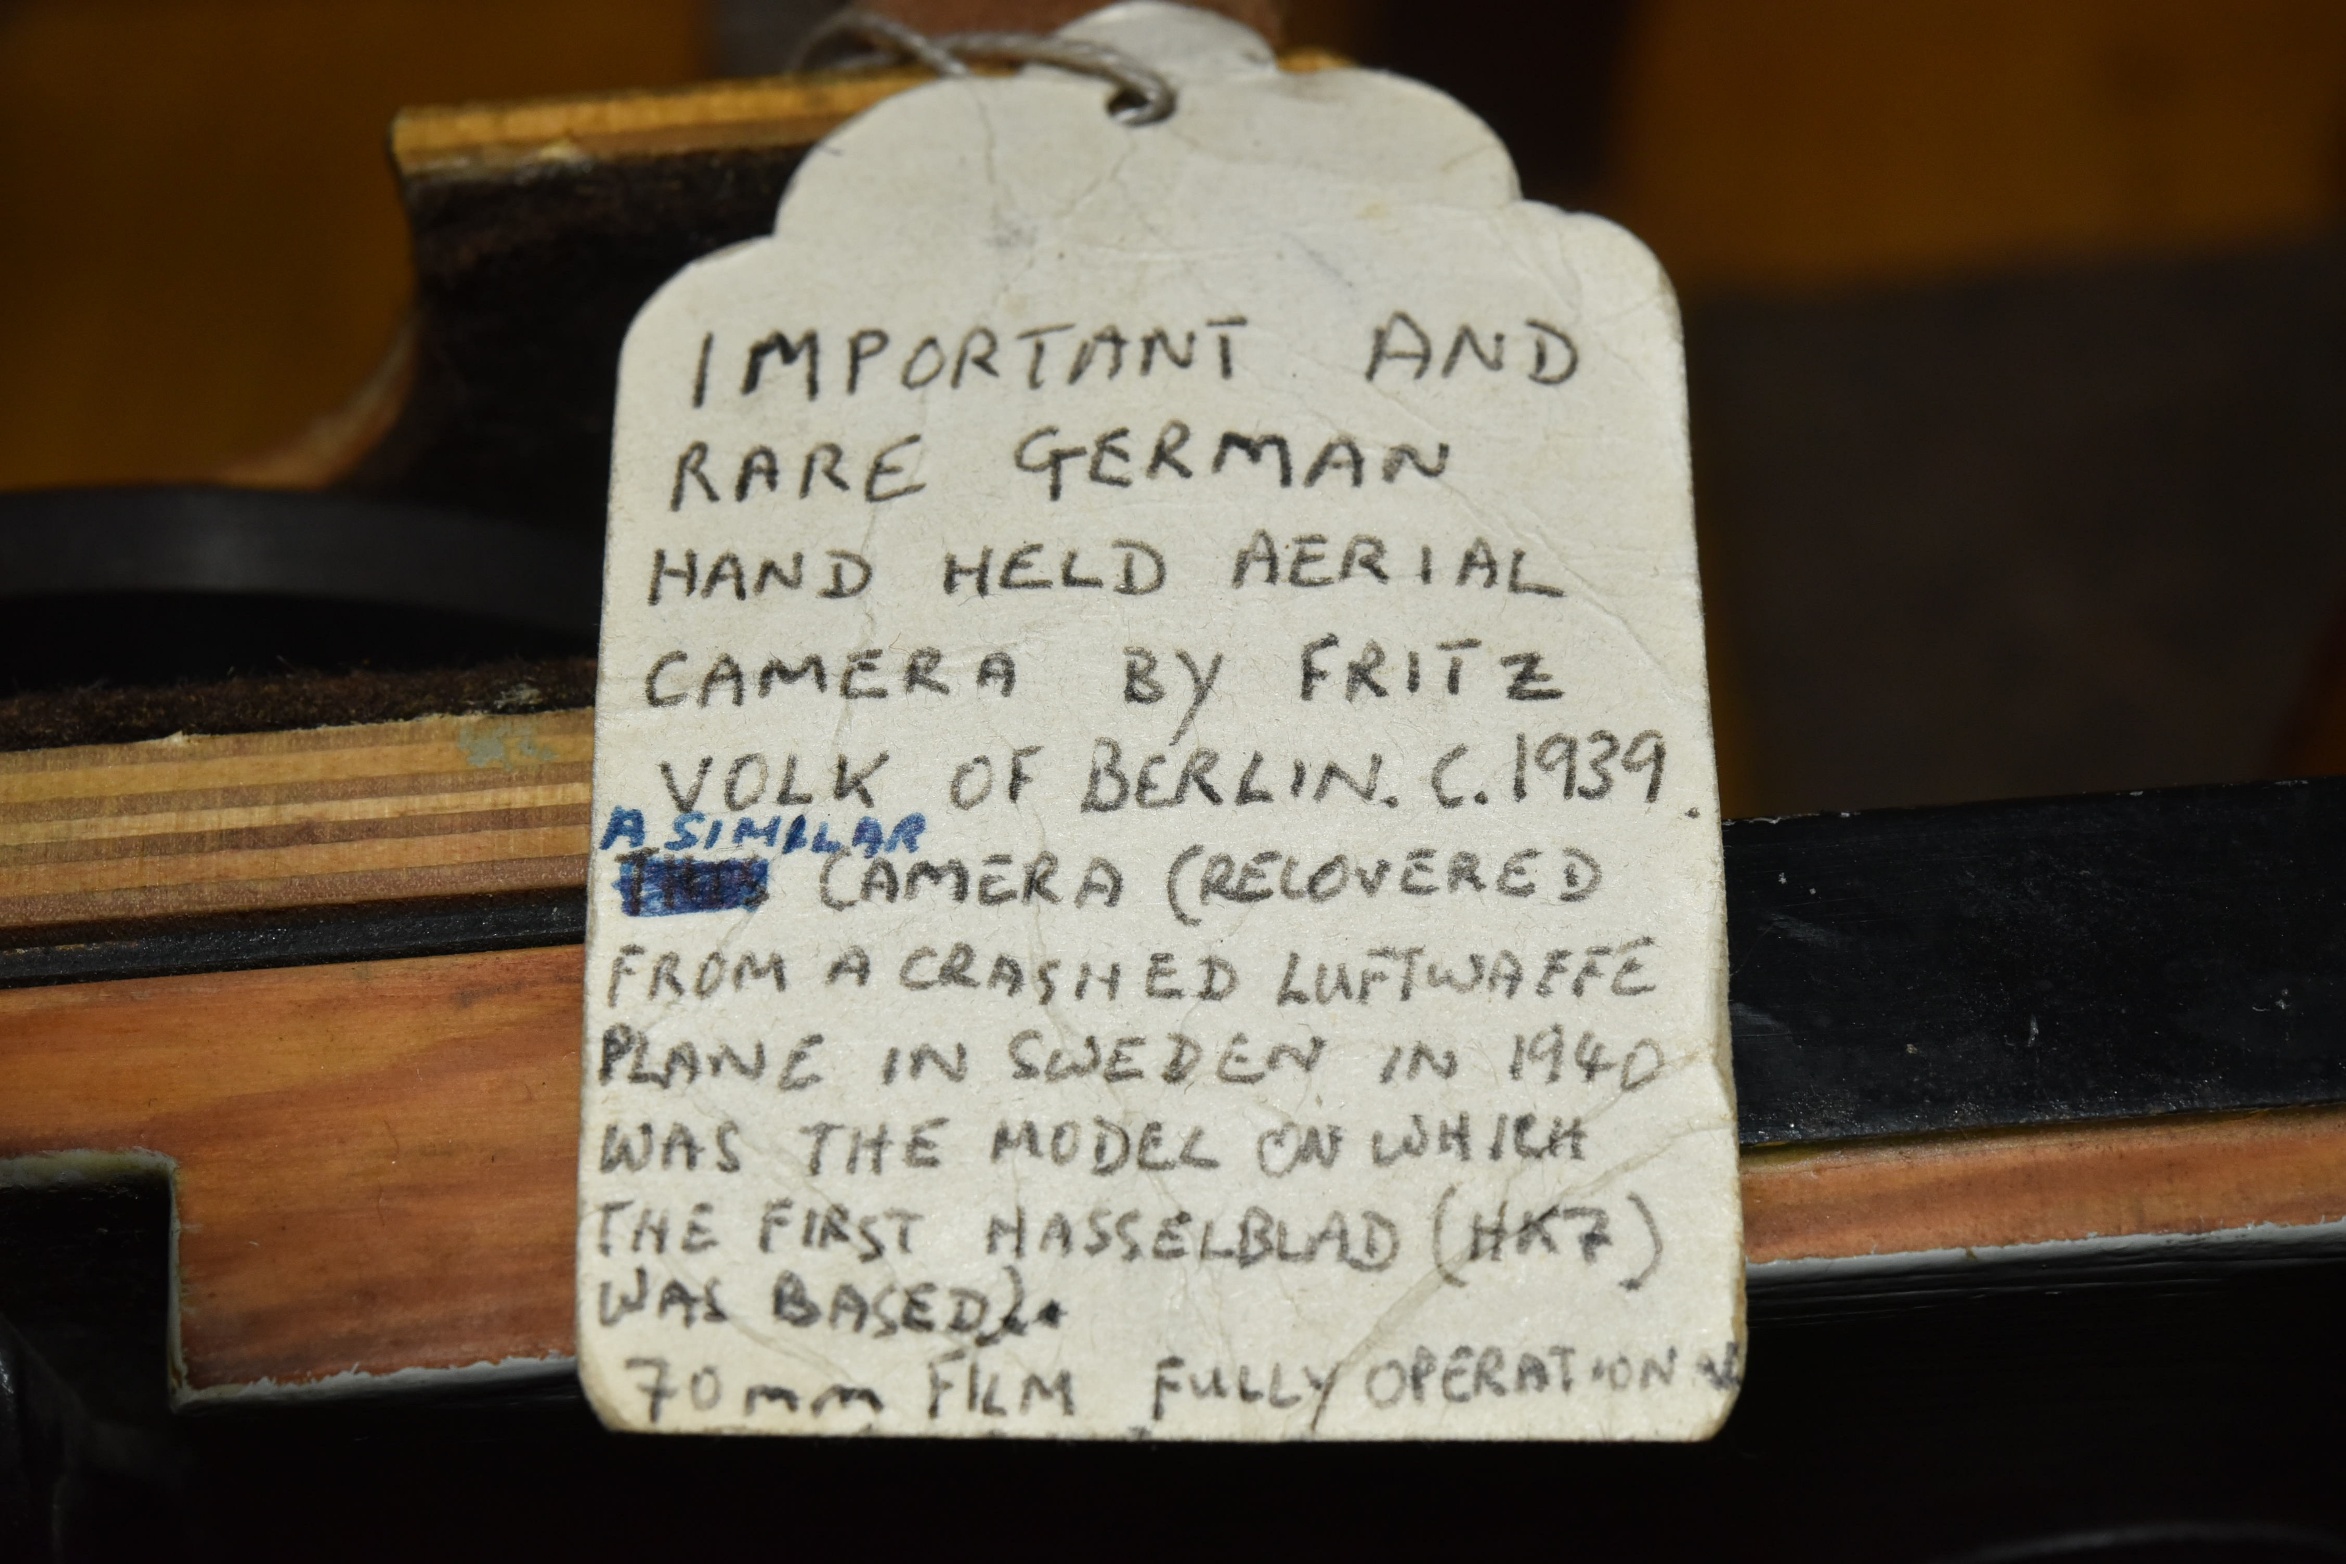 IMPORTANT AND
RARE GERMAN
HAND HELD AERIAL
CAMERA BY FRITZ
VOLK OF BERLIN. C. 1939.
A SIMILAR
THIS CAMERA (RECOVERED
FROM A CRASHED LUFTWAFFE
PLANE IN SWEDEN IN 1940
WAS THE MODEL ON WHICH
THE FIRST HASSELBLAD (HK7)
WAS BASED).
70mm FILM FULLY OPERATIONAL